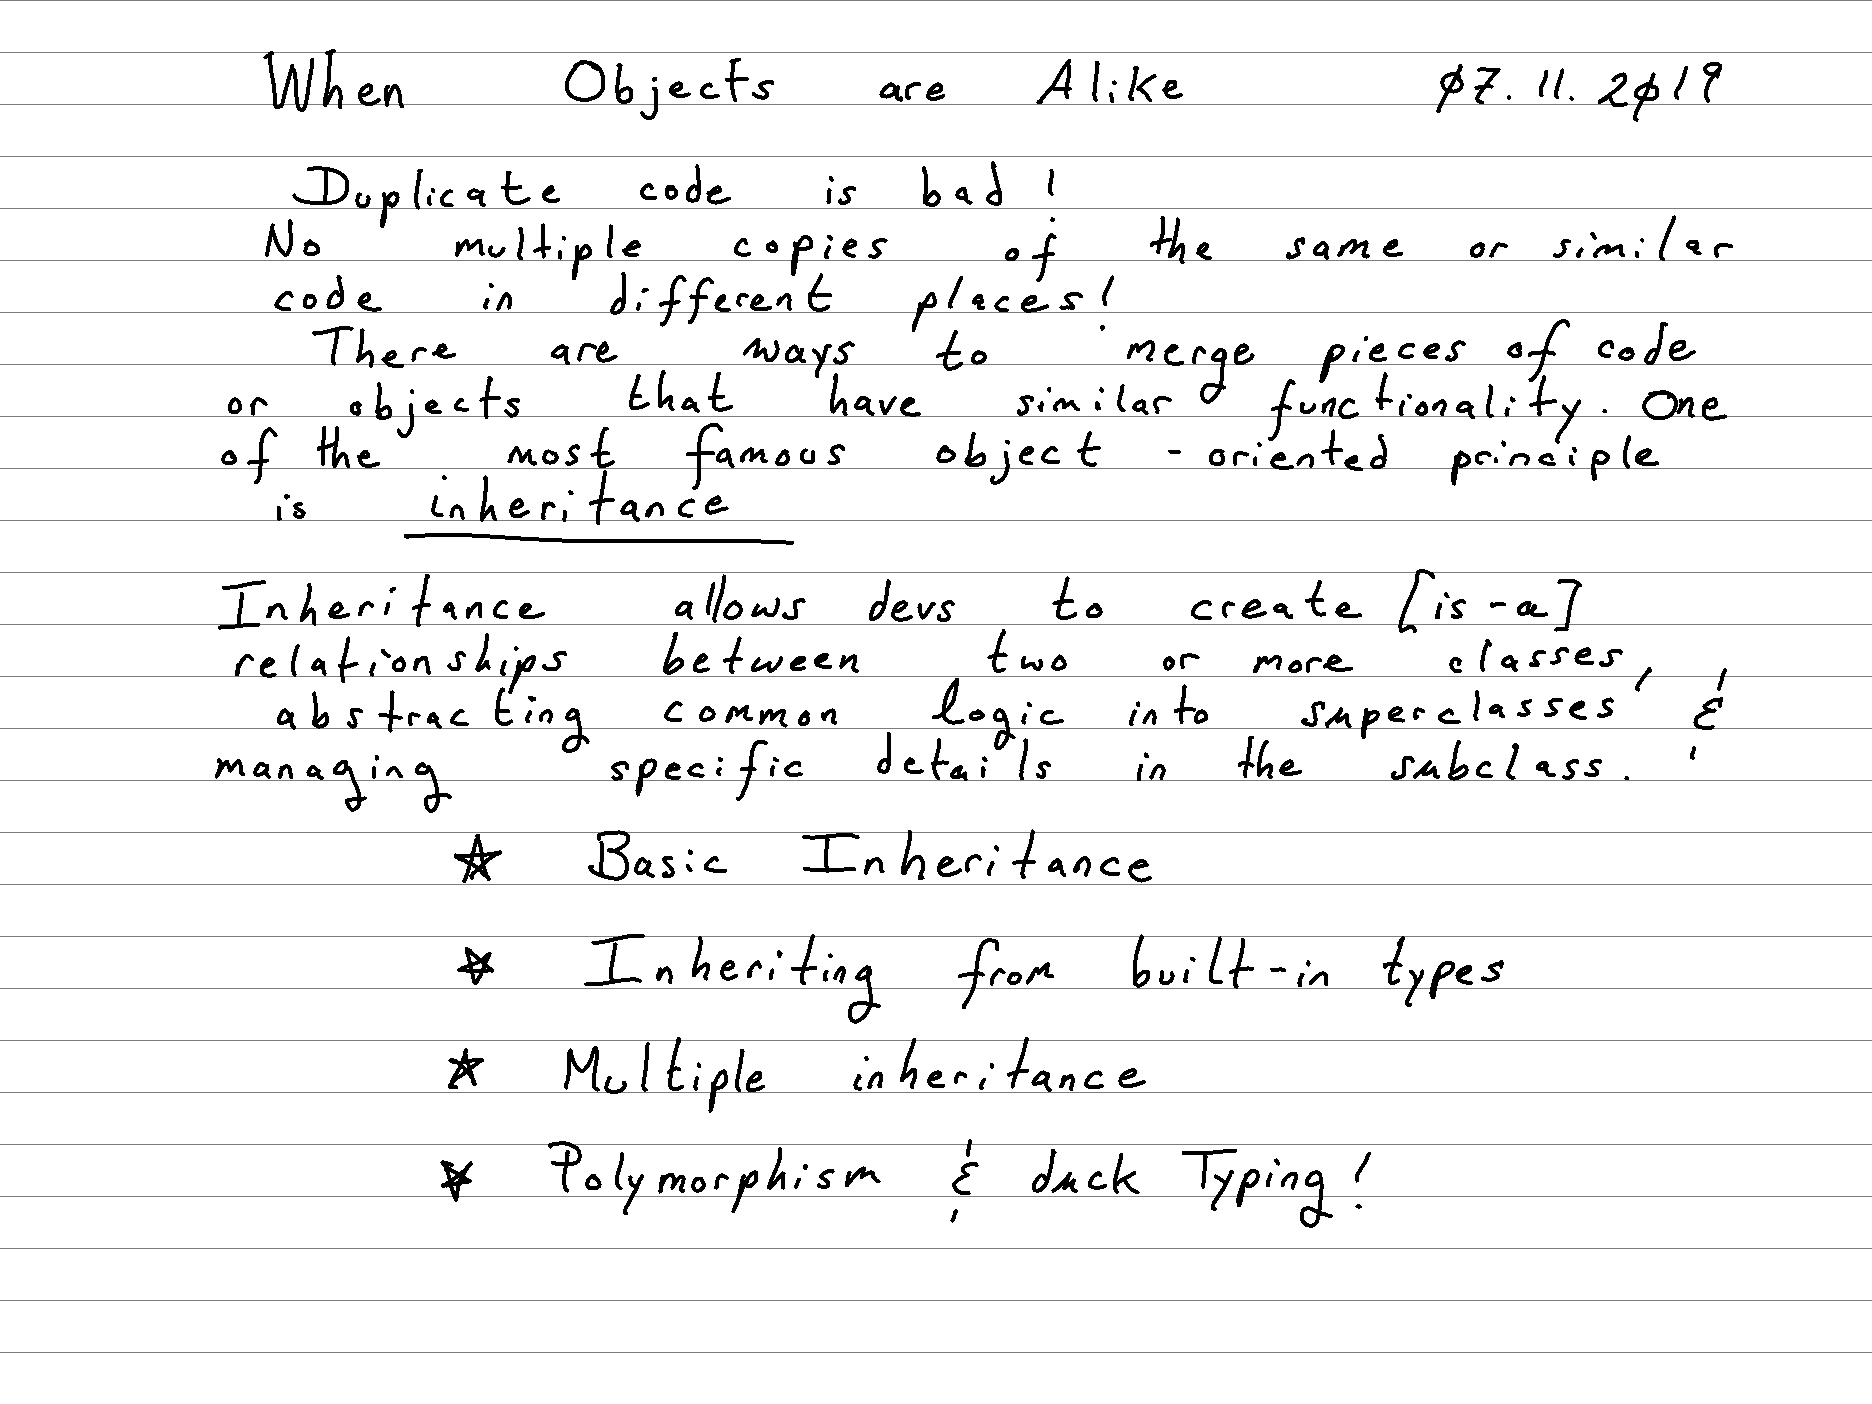 When Objects are Alike 07.11.2019
Duplicate code is bad!
No multiple copies of the same or similar
code in different places!
There are ways to merge pieces of code
or objects that have similar functionality. One
of the most famous object-oriented principle
is inheritance
Inheritance allows devs to create [is-a]
relationships between two or more classes,
abstracting common logic into superclasses &
managing specific details in the subclass.
☆ Basic Inheritance
☆ Inheriting from built-in types
☆ Multiple inheritance
☆ Polymorphism & duck Typing!